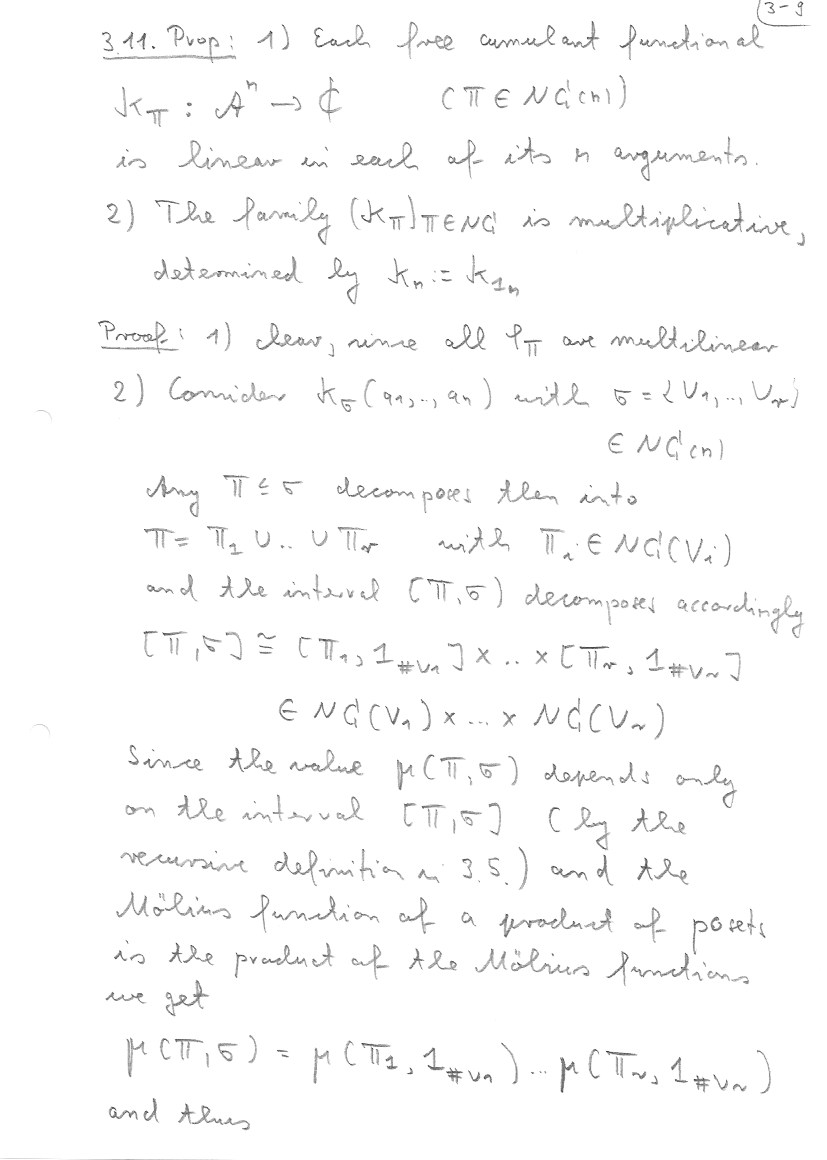 3-9
3.11. Prop: 1) Each free cumulant functional
κ_π : A^n → ℂ (π ∈ NC(n))
is linear in each of its n arguments.
2) The family (κ_π)_{π∈NC} is multiplicative,
determined by κ_n := κ_{1_n}
Proof: 1) clear, since all φ_π are multilinear
2) Consider κ_σ(a_1,..,a_n) with σ = {V_1,..,V_r}
∈ NC(n)
Any π ≤ σ decomposes then into
π = π_1 ∪ .. ∪ π_r with π_i ∈ NC(V_i)
and the interval [π,σ] decomposes accordingly
[π,σ] ≅ [π_1, 1_{#V_1}] × .. × [π_r, 1_{#V_r}]
∈ NC(V_1) × ... × NC(V_r)
Since the value μ(π,σ) depends only
on the interval [π,σ] (by the
recursive definition in 3.5.) and the
Möbius function of a product of posets
is the product of the Möbius functions
we get
μ(π,σ) = μ(π_1, 1_{#V_1}) ... μ(π_r, 1_{#V_r})
and thus